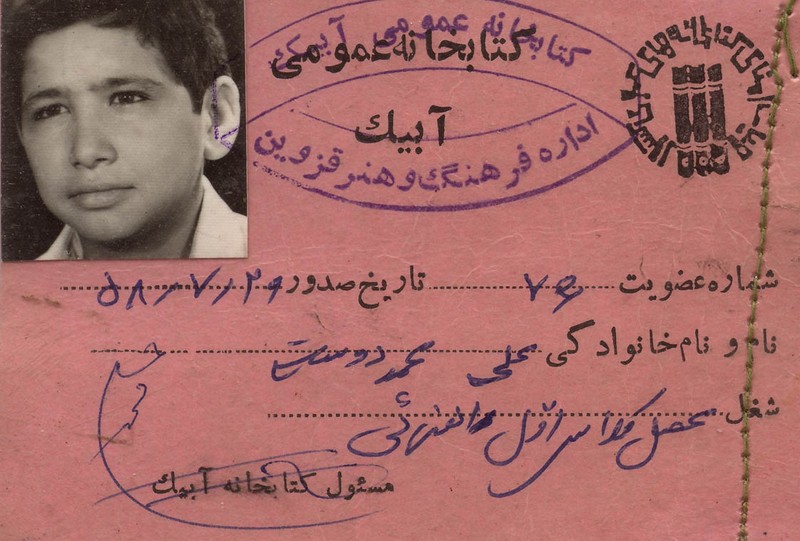 کتابخانه عمومی
آبیك
کتابخانه عمومی آبیک
اداره فرهنگ و هنر قزوین
شماره عضویت ۷۶ تاریخ صدور ۵۸/۷/۲۹
نام و نام خانوادگی علی محمددوست
شغل محصل کلاس اول راهنمائی
مسئول کتابخانه آبیك